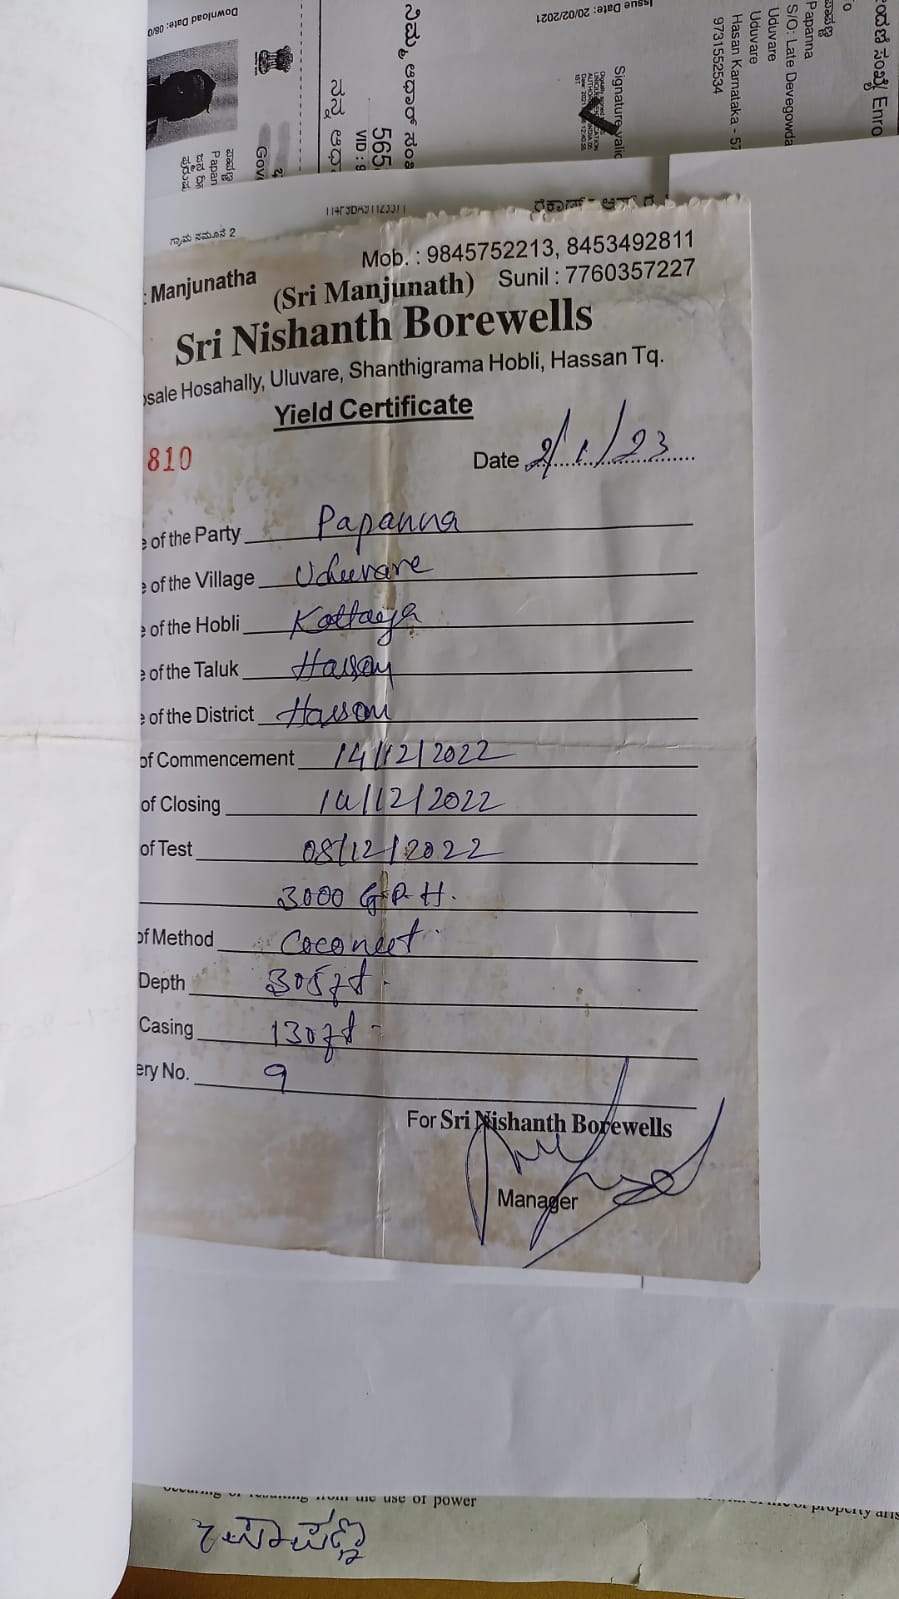 Download Date: 08/0
ನಿಮ್ಮ ಆಧಾರ್ ಸಂಖ
565
VID : 9
ನನ್ನ ಆಧಾ
Gov
Papan
Issue Date: 20/02/2021
Signature valid
Papanna
S/O: Late Devegowda
Uduvare
Uduvare
Hasan Karnataka - 57
9731552534
Enro
ಗ್ರಾಮ ನಮೂನೆ 2
: Manjunatha
Mob. : 9845752213, 8453492811
(Sri Manjunath) Sunil : 7760357227
Sri Nishanth Borewells
osale Hosahally, Uluvare, Shanthigrama Hobli, Hassan Tq.
Yield Certificate
810
Date 2/1/23
e of the Party Papanna
e of the Village Uduvare
e of the Hobli Kattaya
e of the Taluk Hassan
e of the District Hassan
of Commencement 14/12/2022
of Closing 14/12/2022
of Test 08/12/2022
3000 G.P.H.
of Method Coconeet
Depth 305ft
Casing 130ft
ery No. 9
For Sri Nishanth Borewells
Manager
the use of power
of property aris
ಪಾಪಣ್ಣ